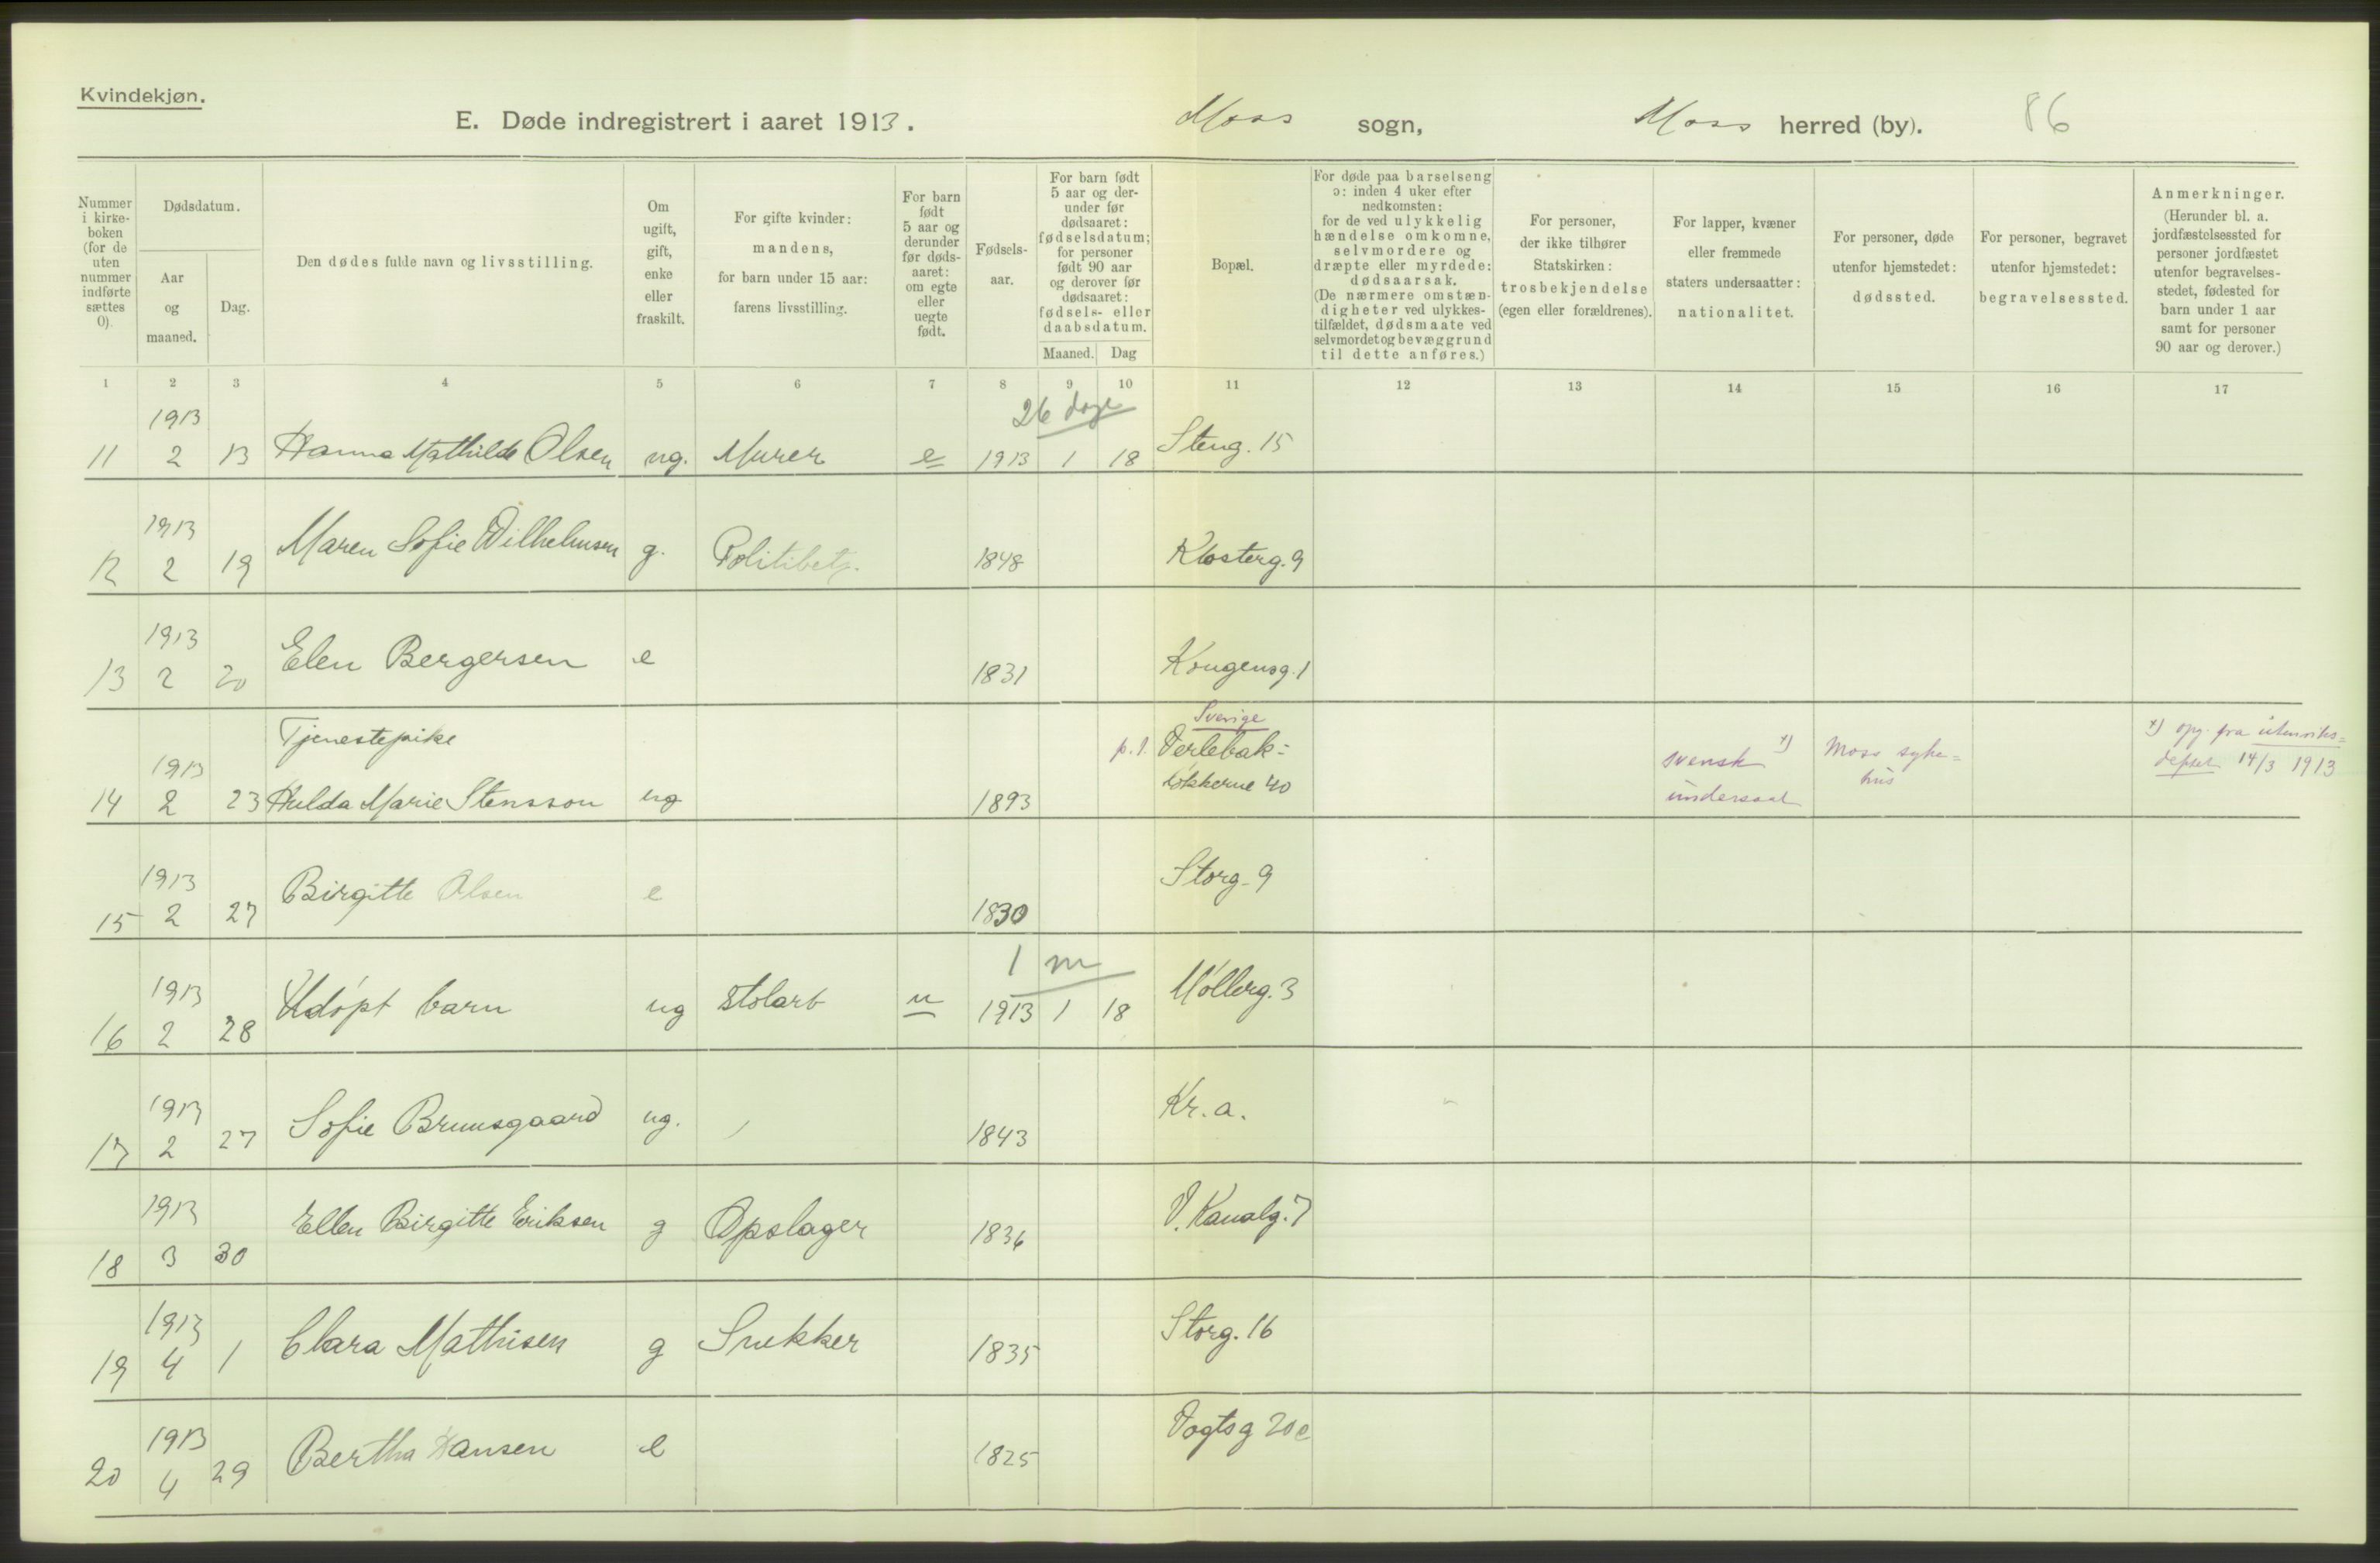 Kvindekjøn.
E. Døde indregistrert i aaret 1913. Moss sogn, Moss herred (by). 86
Nummer i kirke- boken (for de uten nummer indførte sættes 0).
Dødsdatum.
Aar og maaned.
Dag.
Den dødes fulde navn og livsstilling.
Om ugift, gift, enke eller fraskilt.
For gifte kvinder: mandens, for barn under 15 aar: farens livsstilling.
For barn født 5 aar og derunder før døds- aaret: om egte eller uegte født.
Fødsels- aar.
For barn født 5 aar og der- under før dødsaaret: fødselsdatum; for personer født 90 aar og derover før dødsaaret: fødsels- eller daabsdatum.
Maaned. Dag
Bopæl.
For døde paa barselseng ɔ: inden 4 uker efter nedkomsten: for de ved ulykkelig hændelse omkomne, selvmordere og dræpte eller myrdede: dødsaarsak. (De nærmere omstæn- digheter ved ulykkes- tilfældet, dødsmaate ved selvmordet og bevæggrund til dette anføres.)
For personer, der ikke tilhører Statskirken: trosbekjendelse (egen eller forældrenes).
For lapper, kvæner eller fremmede staters undersaatter: nationalitet.
For personer, døde utenfor hjemstedet: dødssted.
For personer, begravet utenfor hjemstedet: begravelsessted.
Anmerkninger. (Herunder bl. a. jordfæstelsessted for personer jordfæstet utenfor begravelses- stedet, fødested for barn under 1 aar samt for personer 90 aar og derover.)
1 2 3 4 5 6 7 8 9 10 11 12 13 14 15 16 17
1913 26 dage
11 2 13 Hanna Mathilde Olsen ug. Murer e 1913 1 18 Steng. 15
1913
12 2 19 Maren Sofie Wilhelmsen g. Politibetj. 1848 Klosterg. 9
1913
13 2 20 Elen Bergersen e 1831 Kongensg. 1
Tjenestepike Sverige
1913 p.t. Verlebak= svensk x) Moss syke= x) opg. fra utenriks=
14 2 23 Hulda Marie Stensson ug 1893 løkkerne 40 undersaat hus depset 14/3 1913
1913
15 2 27 Birgitte Olsen e 1830 Storg. 9
1913 1 m
16 2 28 Udöpt barn ug stolarb u 1913 1 18 Möllerg. 3
1913
17 2 27 Sofie Brunsgaard ug. 1843 Kr.a.
1913
18 3 30 Ellen Birgitte Eriksen g Opslager 1836 V. Kanalg. 7
1913
19 4 1 Clara Mathisen g Snekker 1835 Storg. 16
1913
20 4 29 Bertha Hansen e 1825 Vogtsg 20c